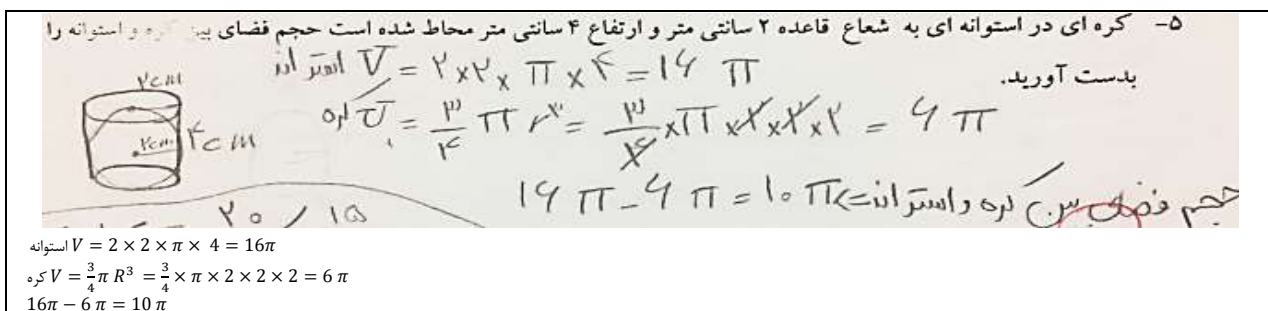 ۵- کره ای در استوانه ای به شعاع قاعده ۲ سانتی متر و ارتفاع ۴ سانتی متر محاط شده است حجم فضای بین کره و استوانه را
بدست آورید.
استوانه V = ۲×۲× π ×۴ = ۱۶ π
کره V = ۳/۴ π r^۳ = ۳/۴ × π × ۲ × ۲ × ۲ = ۶ π
۲cm
۲cm
۴cm
حجم فضای بین کره و استوانه => ۱۶ π - ۶ π = ۱۰ π
۲۰ / ۱۵
استوانه V = 2 × 2 × π × 4 = 16π
کره V = 3/4 π R^3 = 3/4 × π × 2 × 2 × 2 = 6 π
16π − 6 π = 10 π